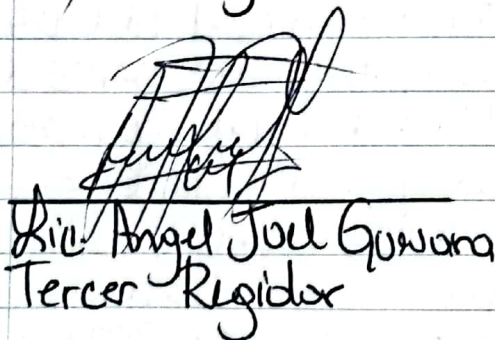 Lic. Angel Joel Guevara
Tercer Regidor